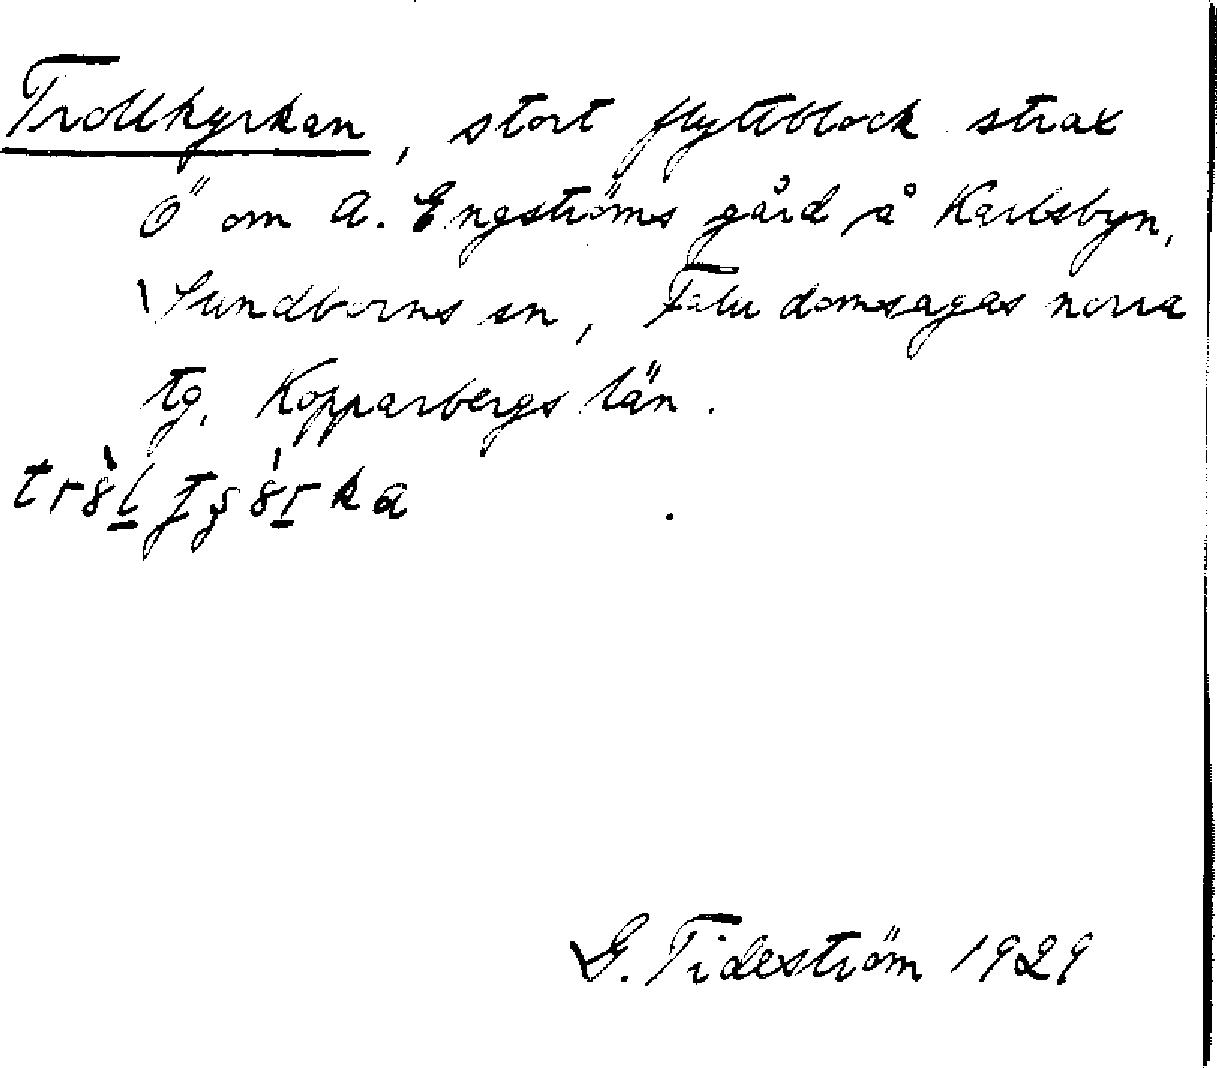 Trollkyrkan, stort flyttblock strax
Ö om A. Engströms gård å Karlsbyn,
Sundborns sn, Falu domsagas norra
tg, Kopparbergs län.
G. Tideström 1929